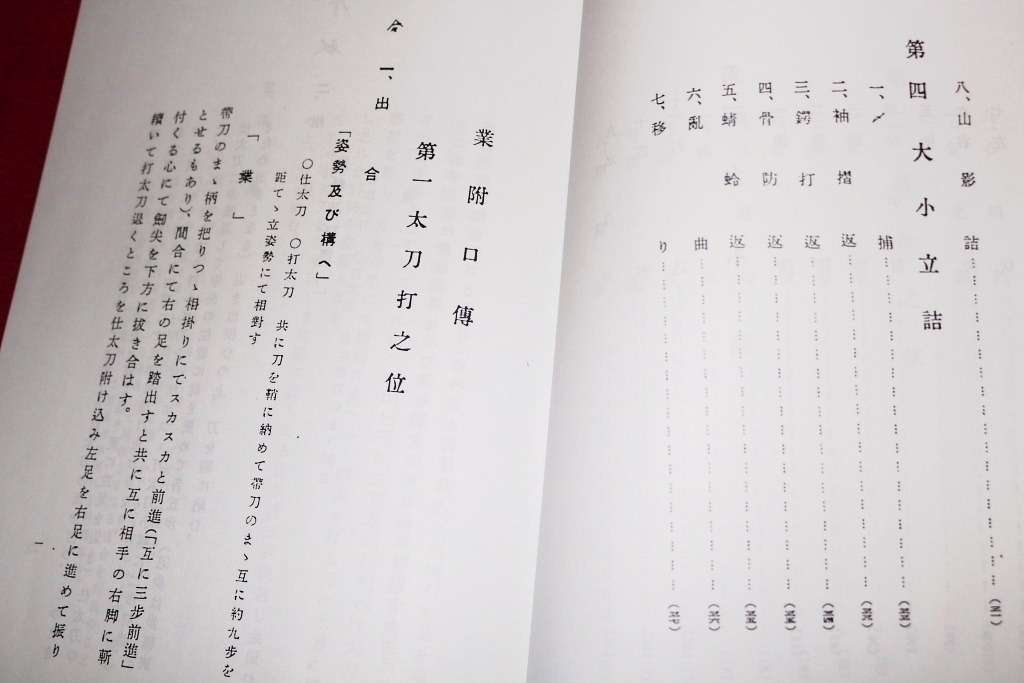 八、山影詰……………………………………(三一)
第四 大小立詰
一、〆捕……………………………………(三三)
二、袖摺返……………………………………(三四)
三、鍔打返……………………………………(三四)
四、骨防返……………………………………(三五)
五、蜻蛉返……………………………………(三五)
六、乱曲……………………………………(三六)
七、移り……………………………………(三七)
業附口傳
第一 太刀打之位
一、出合
「姿勢及び構へ」
○仕太刀 ○打太刀 共に刀を鞘に納めて帶刀のまゝ互に約九步を
距てゝ立姿勢にて相對す
「業」
帶刀のまゝ柄を把りつゝ相掛りにてスカスカと前進(「互に三步前進」
とせるもあり)、間合にて右の足を踏出すと共に互に相手の右脚に斬
付くる心にて劍尖を下方に拔き合はす。
續いて打太刀退くところを仕太刀附け込み左足を右足に進めて振り
一